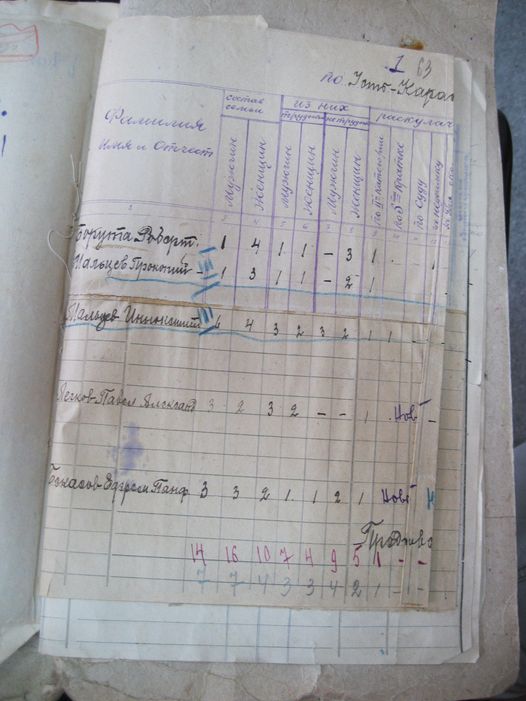 1 63
по Усть-Карат
Фамилия
имя и Отчест
состав семьи
из них
раскулач
трудосп
нетрудо
Мужчин
Женщин
Мужчин
Женщин
Мужчин
Женщин
по II й категории
по кратке
по суду
1
Борута Роберт. 1 4 1 1 – 3 1 1
Мальцев Прокопий 1 3 1 1 – 2 1
Мальцев Иннокентий 6 4 3 2 3 2 1 1
Легков Павел Александ 3 2 3 2 – – 1 Нов –
Ефрем Панф 3 3 2 1 1 2 1 Нов
14 16 10 7 4 9 5 1 – –
7 7 4 3 3 4 2 1 – –